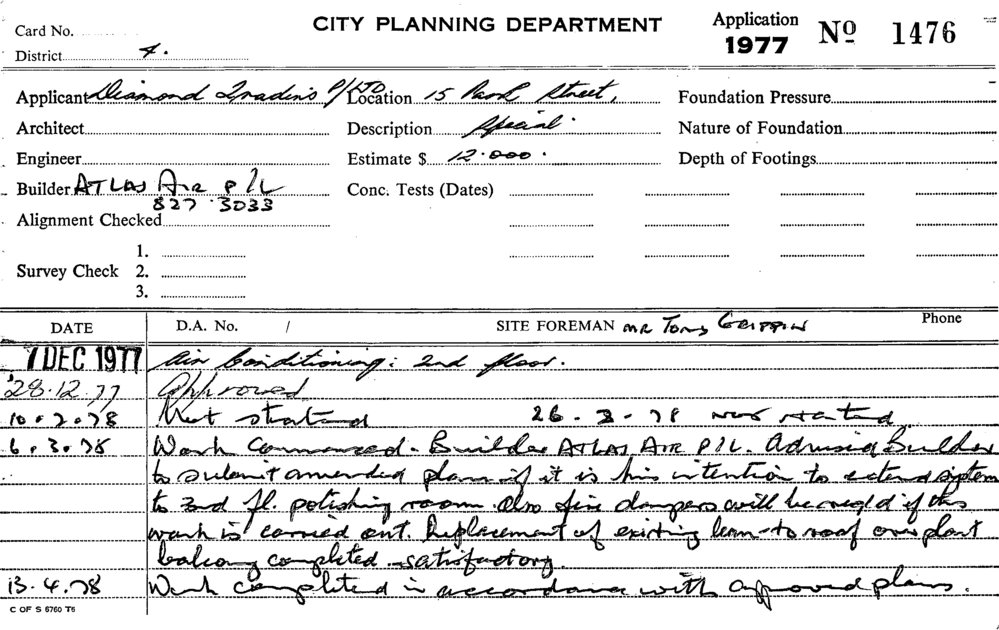 Card No.
CITY PLANNING DEPARTMENT
Application 1977 No 1476
District 4.
Applicant Diamond Traders P/LTD Location 15 Park Street, Foundation Pressure
Architect Description Special. Nature of Foundation
Engineer Estimate $ 12.000. Depth of Footings
Builder ATLAS AIR P/L Conc. Tests (Dates)
827.3033
Alignment Checked
1.
Survey Check 2.
3.
DATE D.A. No. / SITE FOREMAN MR TONY GRIFFIN Phone
7 DEC 1977 Air Conditioning: 2nd floor.
28.12.77 Approved
10.2.78 Not started 26.2.78 not started
6.3.78 Work Commenced. Builder ATLAS AIR P/L. Advised Builder
to submit amended plans if it is his intention to extend system
to 3rd fl. polishing room also fire dampers will be req'd if this
work is carried out. Replacement of existing lean-to roof over plant
balcony completed satisfactory.
13.4.78 Work completed in accordance with approved plans.
C OF S 6760 T6